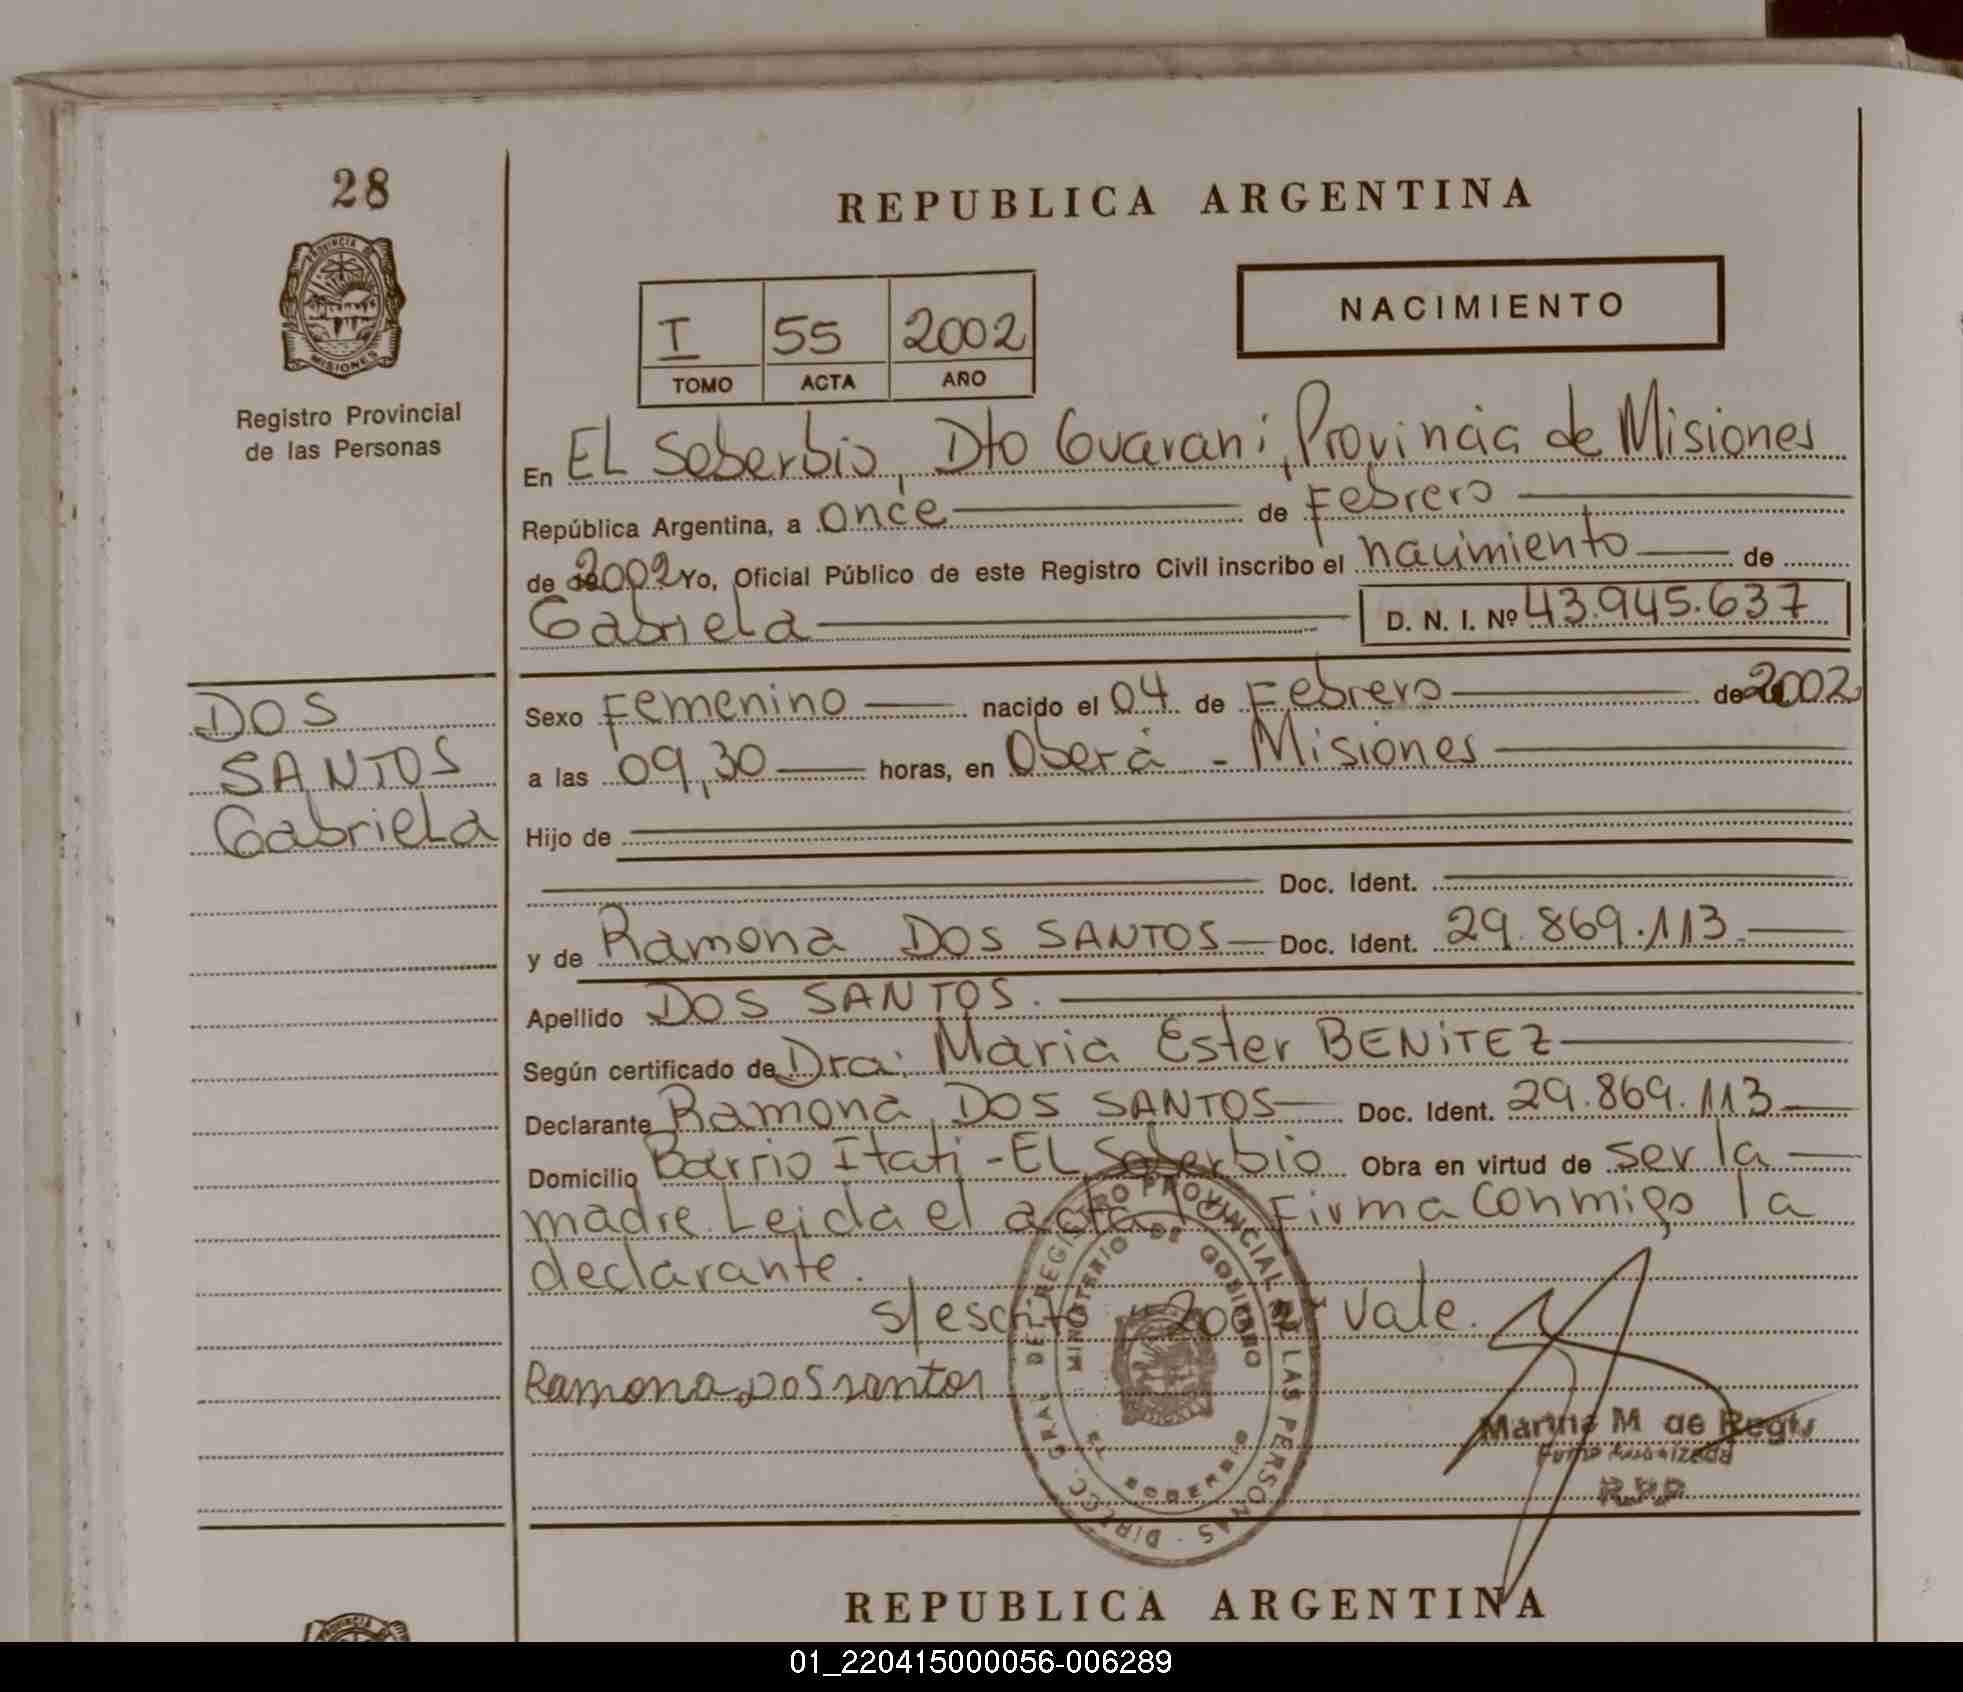 28
REPUBLICA ARGENTINA
PROVINCIA DE
MISIONES
Registro Provincial
de las Personas
NACIMIENTO
I 55 2002
TOMO ACTA AÑO
En EL Soberbio, Dto Guarani, Provincia de Misiones
República Argentina, a once de Febrero
de 2002 Yo, Oficial Público de este Registro Civil inscribo el nacimiento de
Gabriela D. N. I. Nº 43.945.637
DOS
SANTOS
Gabriela
Sexo Femenino nacido el 04 de Febrero de 2002
a las 09,30 horas, en Oberá - Misiones
Hijo de
Doc. Ident.
y de Ramona DOS SANTOS Doc. Ident. 29.869.113
Apellido DOS SANTOS.
Según certificado de Dra. Maria Ester BENITEZ
Declarante Ramona DOS SANTOS Doc. Ident. 29.869.113
Domicilio Barrio Itati - EL Soberbio Obra en virtud de ser la
madre. Leida el acta la Firma conmigo la
declarante.
s/escrito "2002" vale.
Ramona Dos santos
DIRECC. GRAL. DE REGISTRO PROVINCIAL DE LAS PERSONAS
MINISTERIO DE GOBIERNO
EL SOBERBIO
Marina M de
Firma Autorizada
R.P.P
REPUBLICA ARGENTINA
01_220415000056-006289